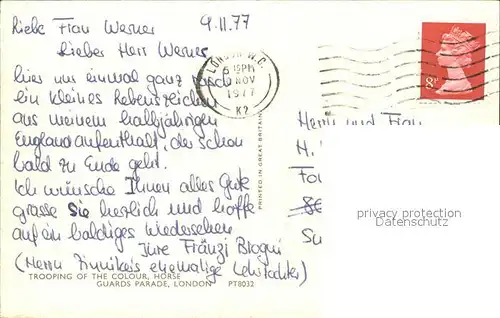 Liebe Frau Werner 9.11.77
Lieber Herr Werner
hier nun einmal ganz rasch
ein kleines Lebenszeichen
aus meinem halbjährigen
Englandaufenthalt, der schon
bald zu Ende geht.
Ich wünsche Ihnen alles Gute
grüsse Sie herzlich und hoffe
auf ein baldiges Wiedersehen
Ihre Fränzi
(Herrn ehemalige Lehrtochter)
TROOPING OF THE COLOUR, HORSE
GUARDS PARADE, LONDON PT8032
PRINTED IN GREAT BRITAIN
LONDON W.C.
NOV
1977
K2
8P
Herrn und Frau
H.
privacy protection
samlerforum